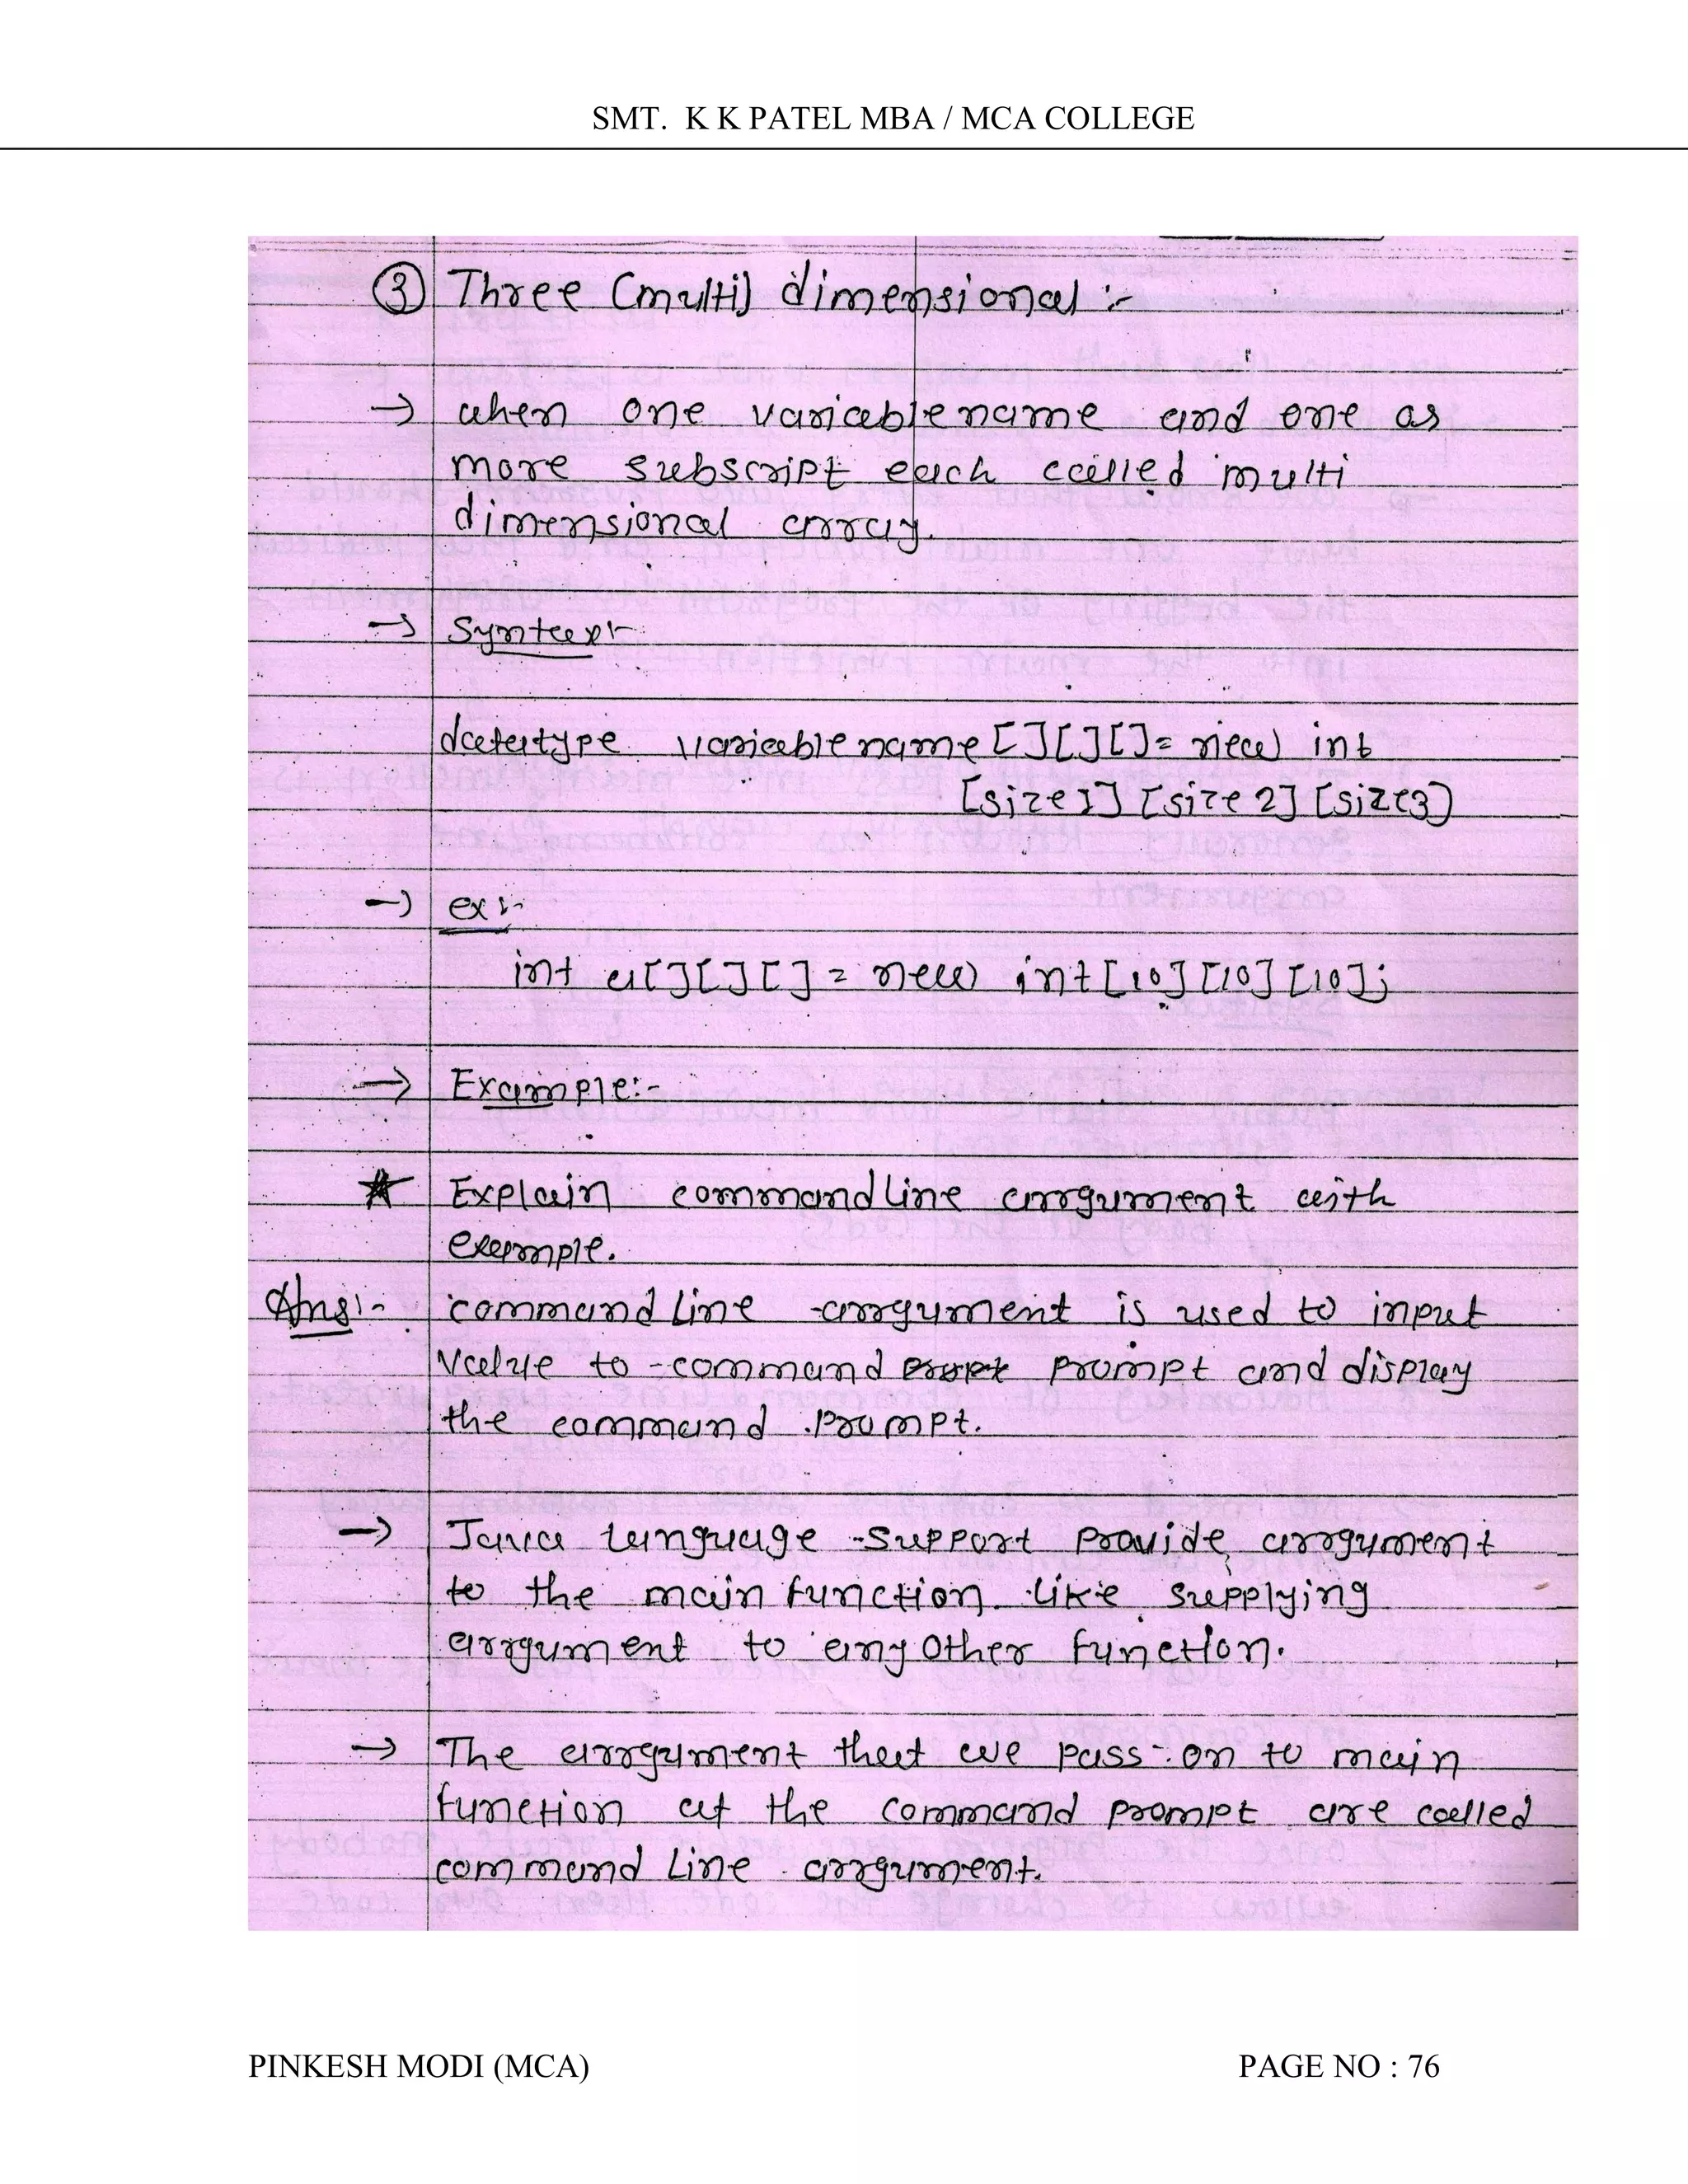 SMT. K K PATEL MBA / MCA COLLEGE
③ Three (multi) dimensional :-
→ when one variable name and one as
more subscript each called multi
dimensional array.
→ Syntax :-
datatype variablename [][][]= new int
[size1] [size 2] [size3]
→ ex :-
int a[][][] = new int [10] [10] [10];
→ Example:-
* Explain commandline arrgument with
example.
Ans:- command line arrgument is used to input
value to command prompt and display
the command prompt.
→ Java language support provide arrgument
to the main function like supplying
arrgument to any other function.
→ The arrgument that we pass on to main
function at the command prompt are called
command line arrgument.
PINKESH MODI (MCA) PAGE NO : 76